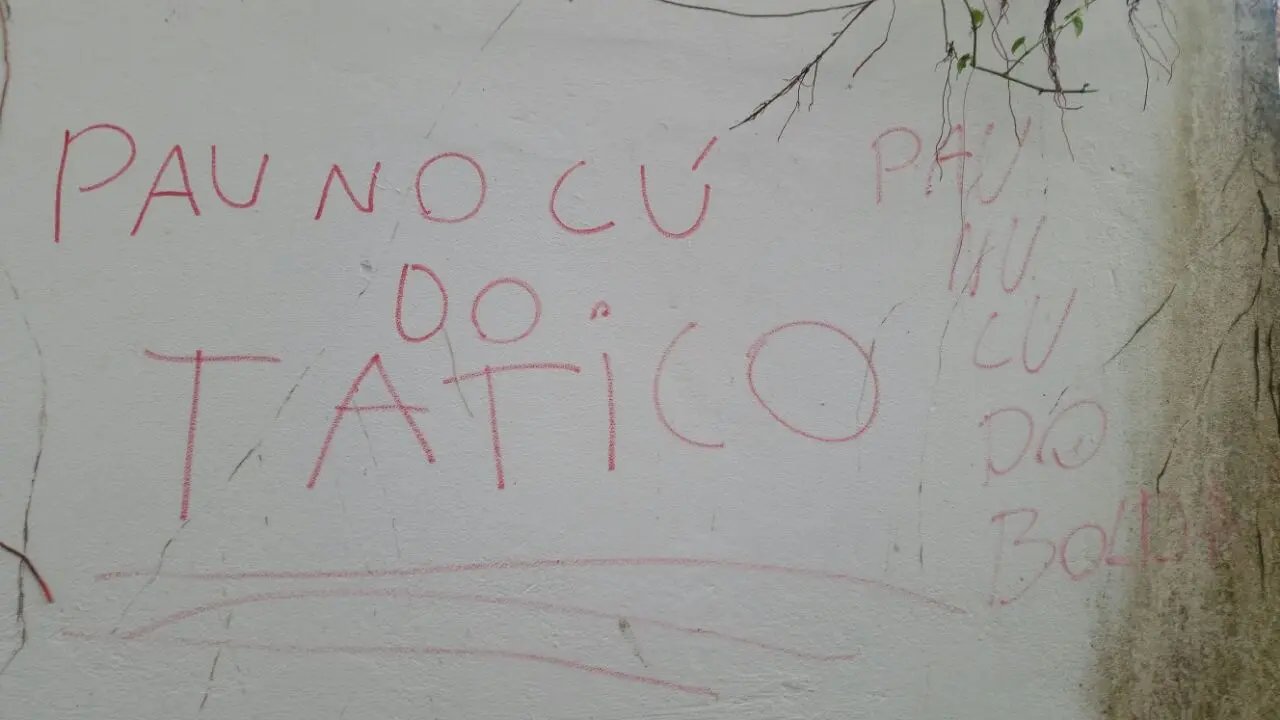 PAU NO CÚ
DO
TATICO
PAU
NU
CU
DO